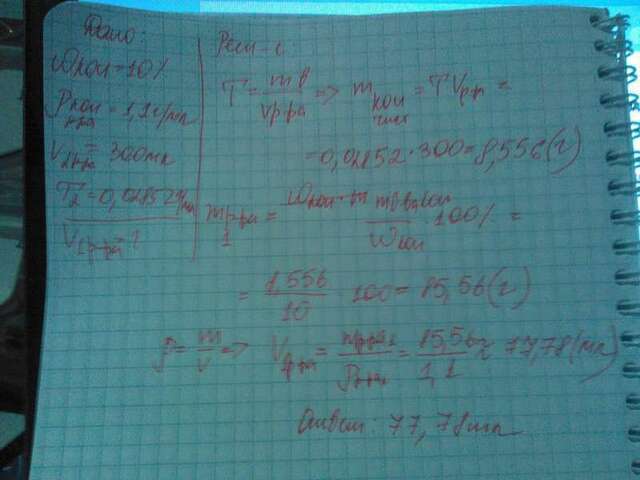 Дано:
ωкон = 10%
ρкон р-ра = 1,1 г/мл
V2 р-ра = 300 мл
T2 = 0,02852 г/мл
V1 р-ра - ?
Реш-е:
T = m в / V р-ра => m кон чист = T V р-р =
= 0,02852 · 300 = 8,556 (г)
m р-ра 1 = m в ва кон / ωкон · 100% =
= 8,556 / 10 · 100 = 85,56 (г)
ρ = m / V => V1 р-ра = m р-ра 1 / ρ р-ра = 85,56 / 1,1 ≈ 77,78 (мл)
Ответ: 77,78 мл